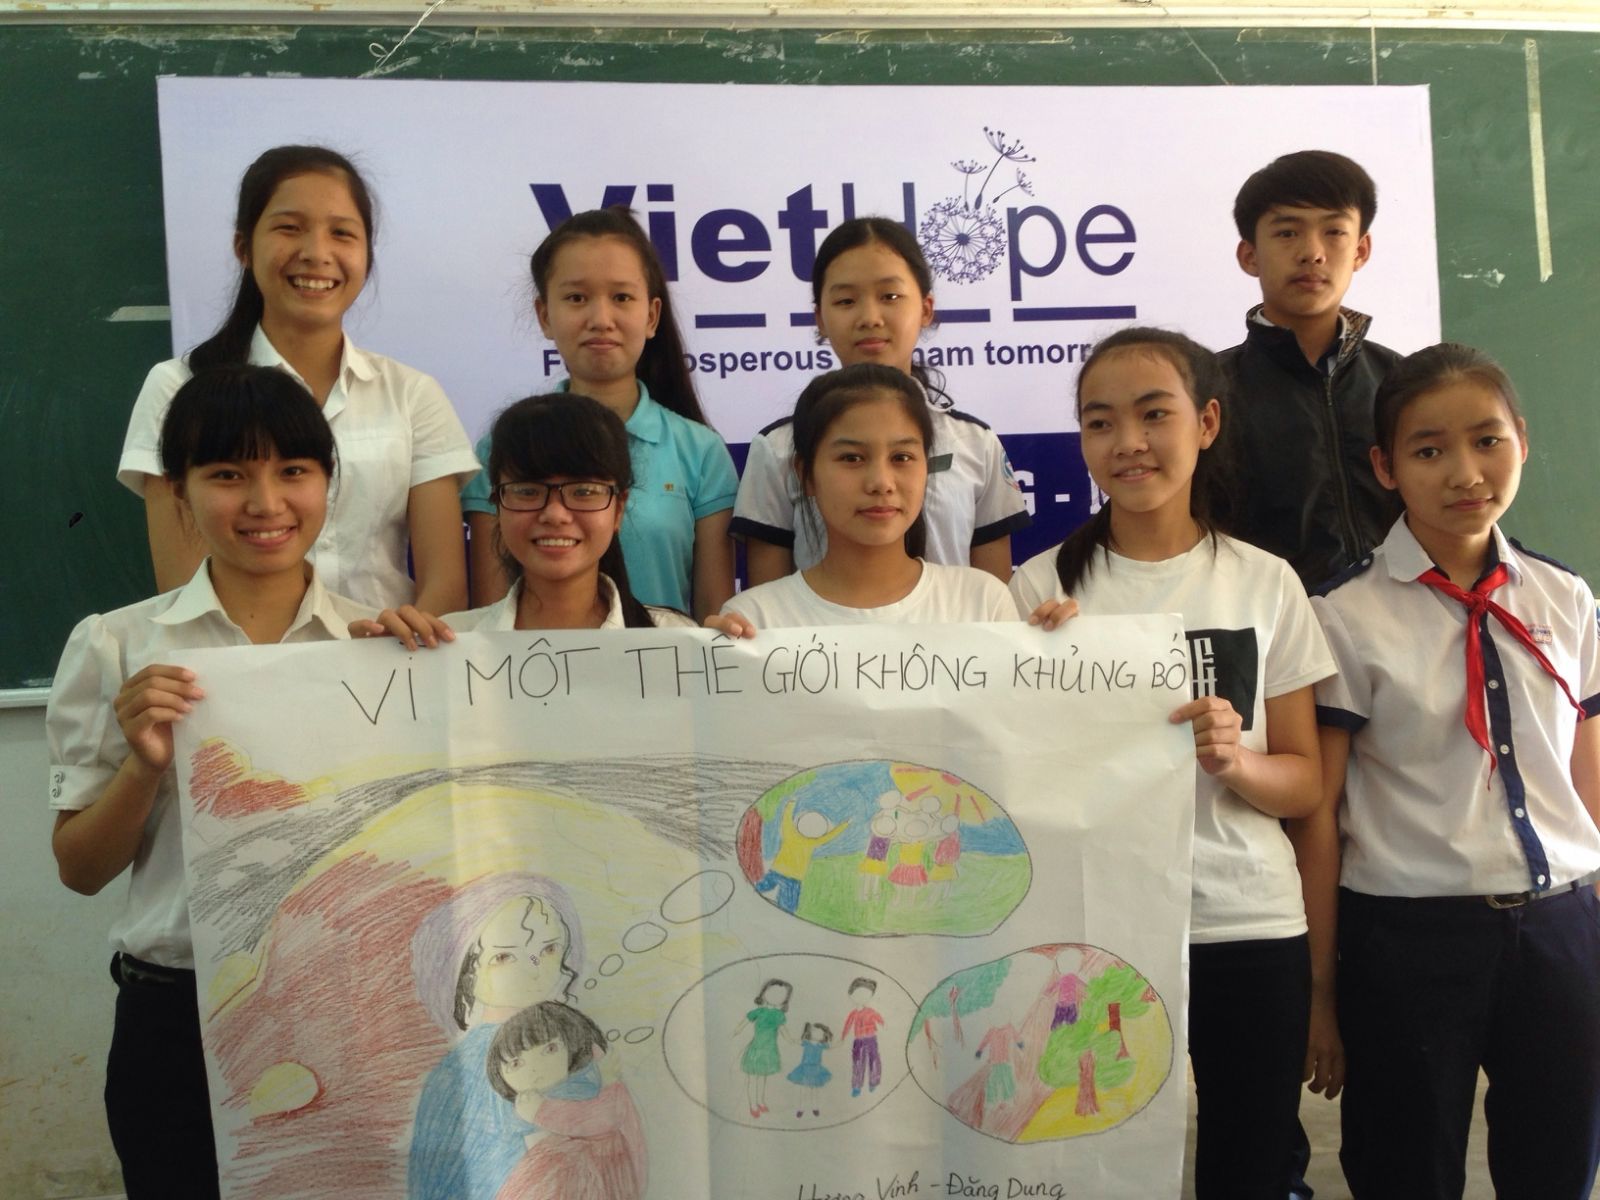 VietHope
osperous nam tomorr
G -
VÌ MỘT THẾ GIỚI KHÔNG KHỦNG BỐ
Vinh - Đặng Dung